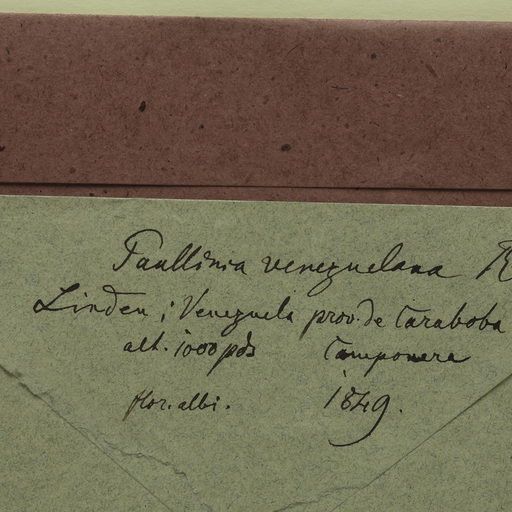 Paullinia venezuelana R
Linden; Venezuela prov. de Carabobo
alt. 1000 pds Camponera
flor. albi. 1849.